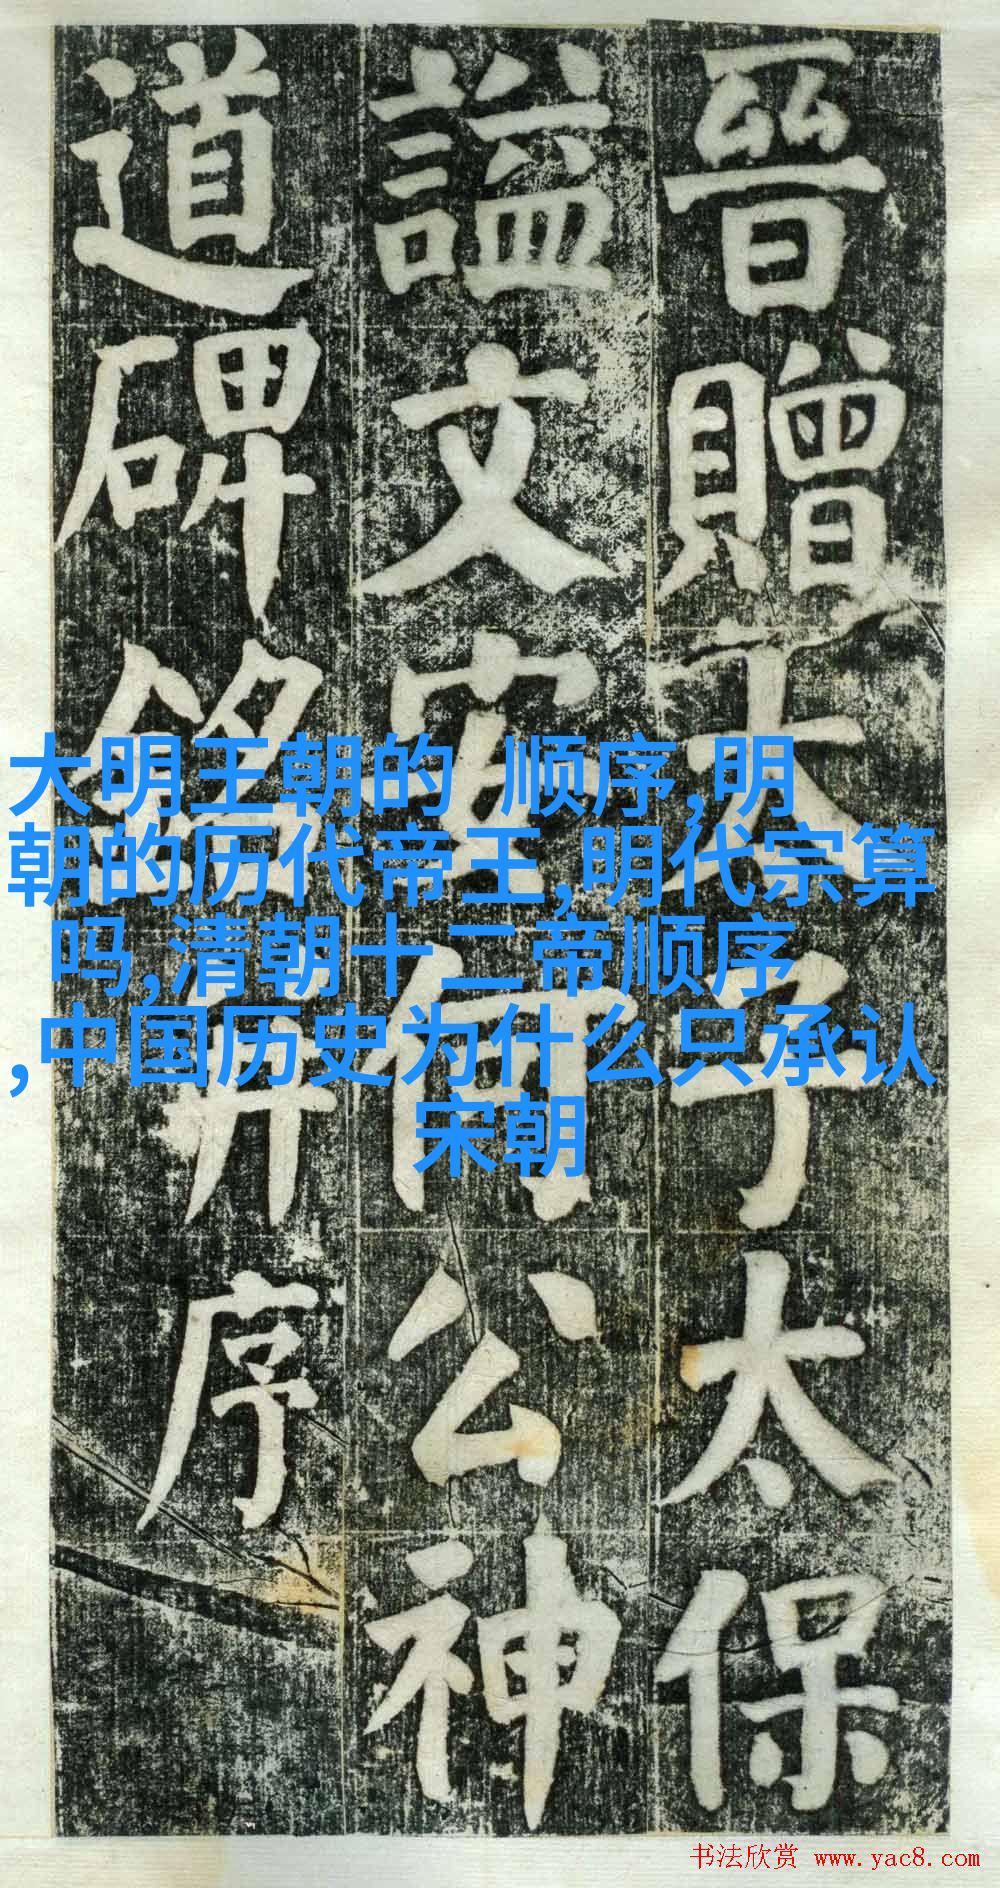 晉贈太子太保
謚文安何公神
道碑銘并序
大明王朝的 顺序,明
朝的历代帝王,明代宗算
吗,清朝十二帝顺序
,中国历史为什么只承认
宋朝
书法欣赏 www.yac8.com